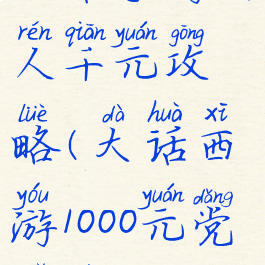 rén qiān yuán gōng
人千元攻
lüè dà huà xī
略(大话西
yóu yuán dǎng
游1000元党